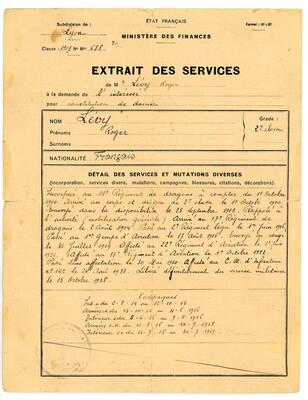 Subdivision de
Lyon
ÉTAT FRANÇAIS
MINISTÈRE DES FINANCES
Classe
EXTRAIT DES SERVICES
de M. Lévy Roger
à la demande de l'intéressé
pour constitution de dossier
NOM Lévy
Prénoms Roger
Surnoms
Grade :
2e classe
NATIONALITÉ Français
DÉTAIL DES SERVICES ET MUTATIONS DIVERSES
(Incorporation, services divers, mutations, campagnes, blessures, citations, décorations).
Incorporé au Régiment de dragons à compter du 1er Octobre
1910. Arrivé au corps et dragon de 2e classe le 1er Octobre 1910.
Envoyé dans la disponibilité le 25 septembre 1912. Rappelé à
l'activité (mobilisation générale). Arrivé au Régiment de
dragons le 2 Août 1914. Passé au 2e Régiment léger le 1er juin 1916.
Passé au 1er Groupe d'Aviation le 17 Août 1916. Envoyé en congé
le 31 Juillet 1919. Affecté au 22e Régiment d'Aviation le 1er juin
Affecté au 35e Régiment d'Aviation le 1er Octobre 1922.
Passé sans affectation le 10 Mai Affecté au C.M. d'Infanterie
n° 142 le Août 1933. Libéré définitivement du service militaire
le 15 Octobre 1938.
Campagnes
Int. du 2-8-14 au 12-10-14
Armées du 13-10-14 au 4-6-16
Intérieur du 5-6-16 au 9-8-16
Armées s.d. au 10-7-18
Intérieur du 11-7-18 au 30-7-1919